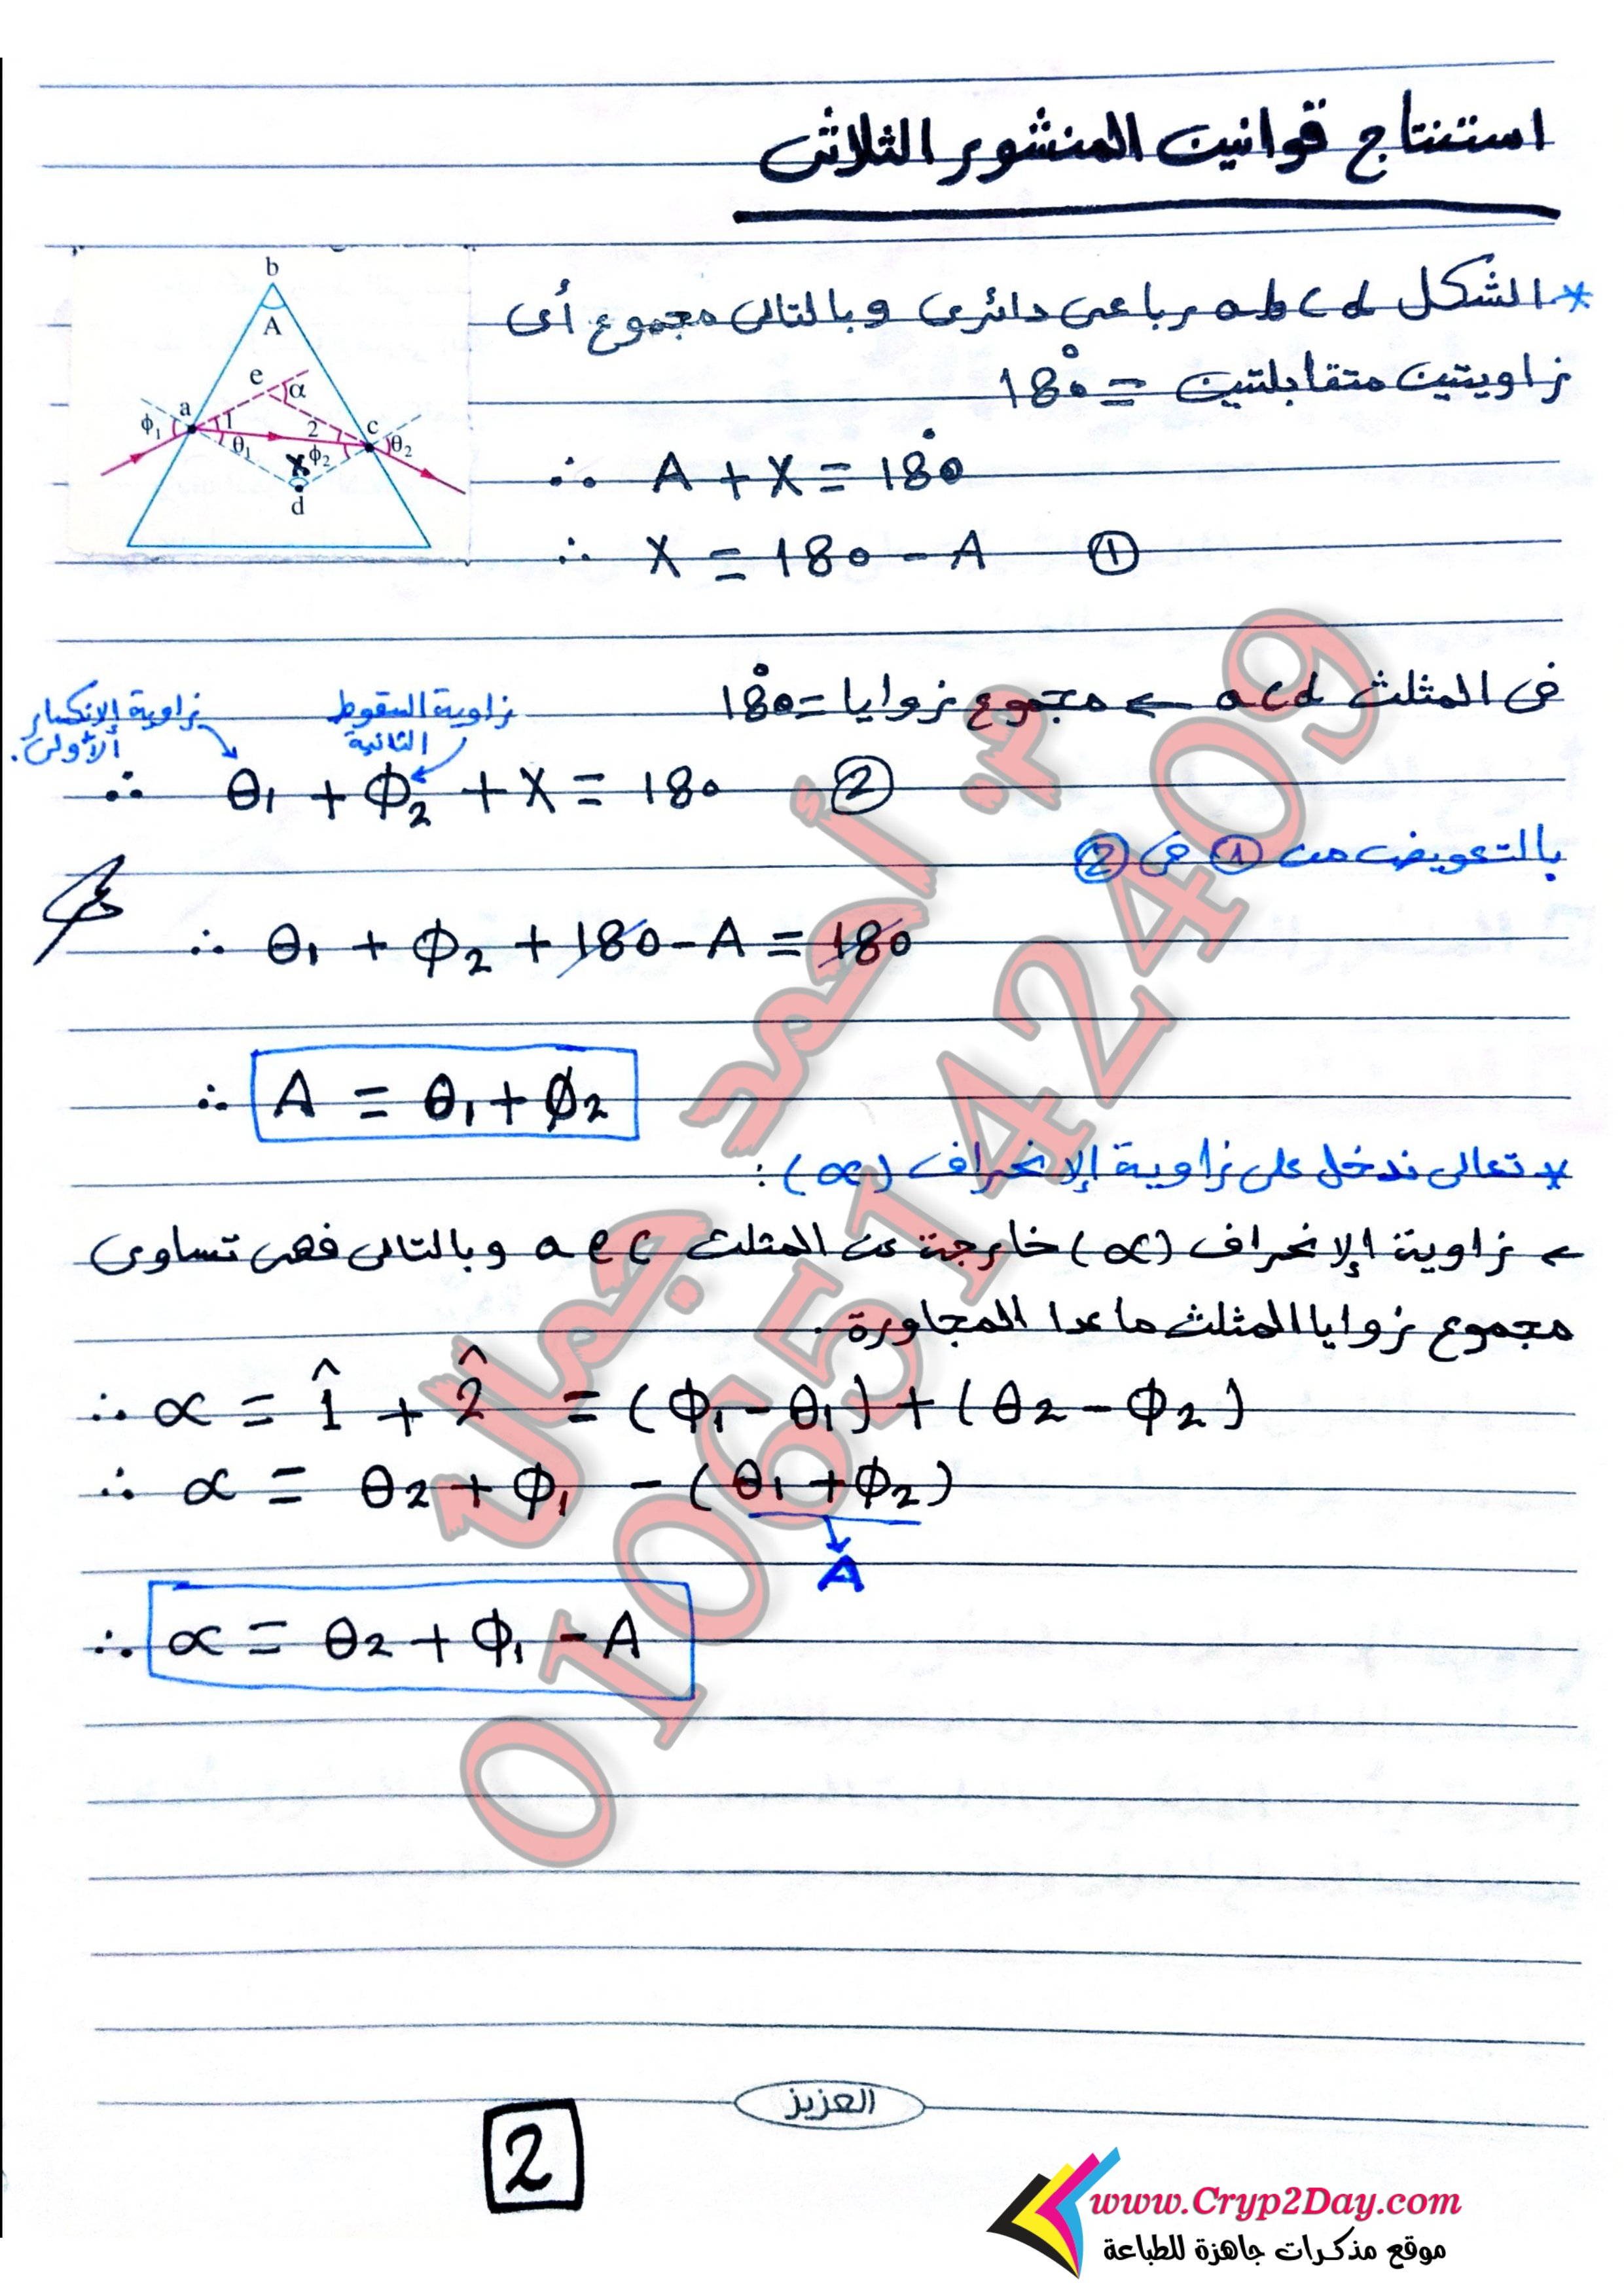 استنتاج قوانين المنشور الثلاثى
* الشكل abcd رباعى دائرى وبالتالى مجموع أى
زاويتين متقابلتين = 180°
∴ A + X = 180°
∴ X = 180 - A ①
b
A
e
α
a
c
ϕ₁
1
2
θ₁
ϕ₂
θ₂
X
d
فى المثلث acd ← مجموع زوايا = 180°
زاوية السقوط الثانية
زاوية الإنكسار الأولى.
∴ θ₁ + ϕ₂ + X = 180 ②
بالتعويض من ① فى ②
∴ θ₁ + ϕ₂ + 180 - A = 180
∴ A = θ₁ + ϕ₂
* تعالى ندخل على زاوية الإنحراف (α) :
← زاوية الإنحراف (α) خارجة عن المثلث aec وبالتالى فهى تساوى
مجموع زوايا المثلث ماعدا المجاورة .
∴ α = 1̂ + 2̂ = (ϕ₁ - θ₁) + (θ₂ - ϕ₂)
∴ α = θ₂ + ϕ₁ - (θ₁ + ϕ₂)
A
∴ α = θ₂ + ϕ₁ - A
م. أحمد جمال
01065142409
العزيز
2
www.Cryp2Day.com
موقع مذكرات جاهزة للطباعة